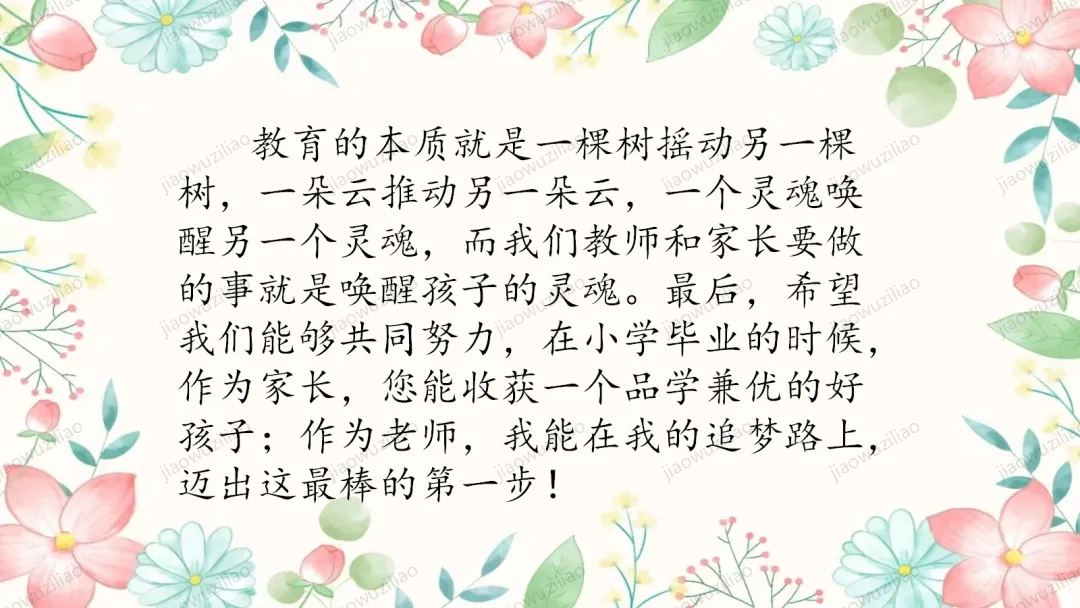 教育的本质就是一棵树摇动另一棵
树，一朵云推动另一朵云，一个灵魂唤
醒另一个灵魂，而我们教师和家长要做
的事就是唤醒孩子的灵魂。最后，希望
我们能够共同努力，在小学毕业的时候，
作为家长，您能收获一个品学兼优的好
孩子；作为老师，我能在我的追梦路上，
迈出这最棒的第一步！
jiaowuziliao